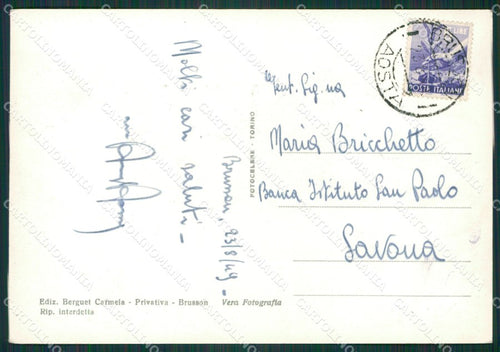 Molti cari
saluti -
Brusson, 23/8/49 -
FOTOCELERE - TORINO
POSTE ITALIANE
AOSTA
Gent. Sig.na
Maria Bricchetto
Banca Istituto San Paolo
Savona
Ediz. Berguet Carmela - Privativa - Brusson
Rip. interdetta
Vera Fotografia
CARTOLINOMANIA